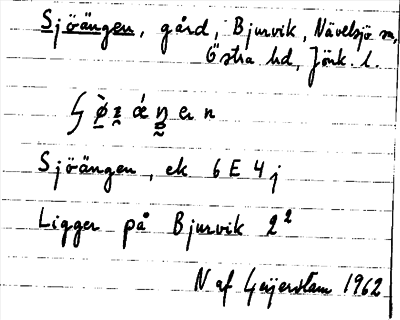 Sjöängen, gård, Bjurvik, Nävelsjö sn,
Östra hd, Jönk. l.
Sjöängen, ek 6 E 4 j
Ligger på Bjurvik 2²
N af Geijerstam 1962